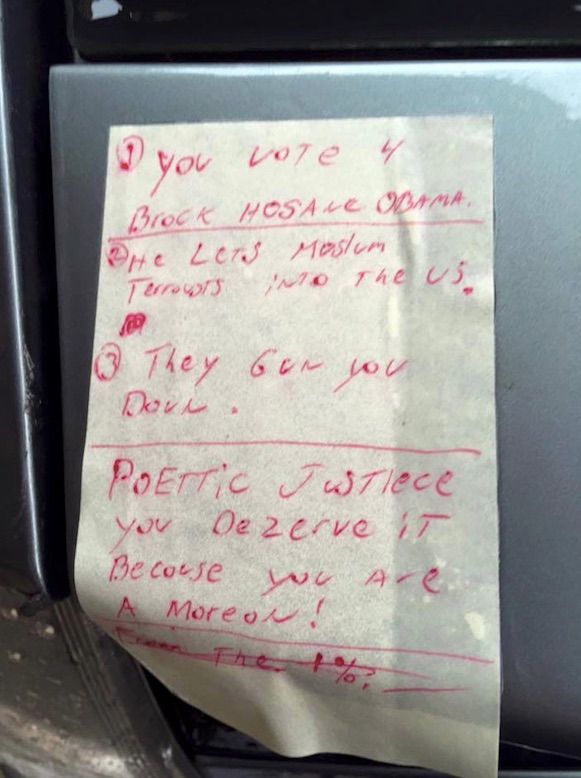 ① you vote 4
Brock HOSANe OBAMA.
② He LeTs Moslum
Terrorists iNTO The US.
③ They Gun you
Down.
PoETTic JusTiece
you Dezerve iT
Becouse you Are
A Moreon!
From The 1%.